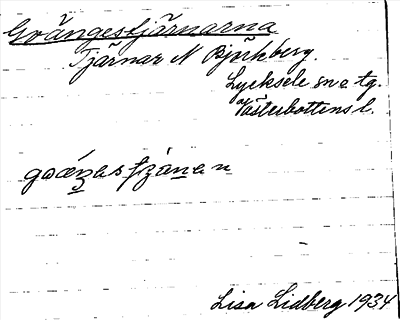 Gvängestjärnarna
Tjärnar N Björkberg.
Lycksele sn o tg.
Västerbottens l.
Lisa Lidberg 1934